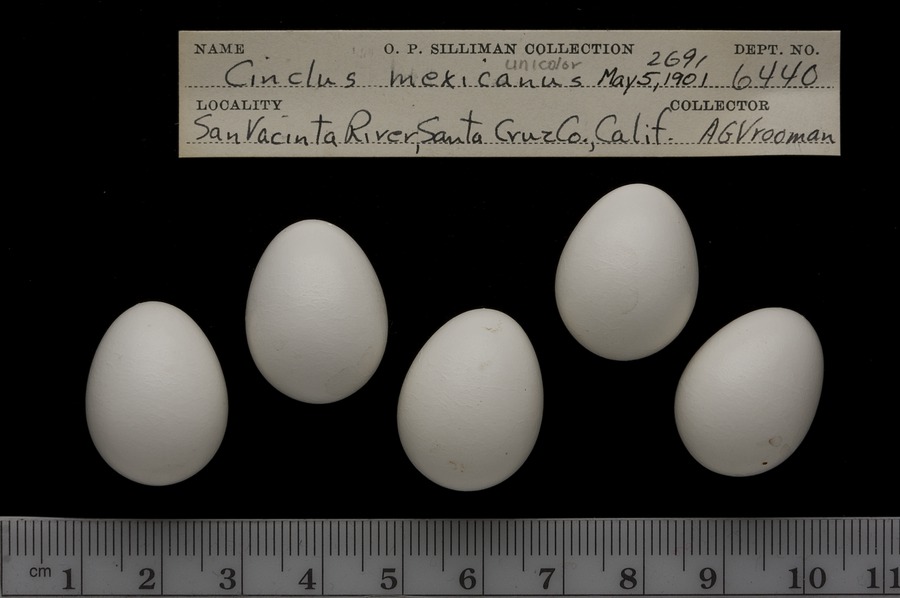 NAME O. P. SILLIMAN COLLECTION DEPT. NO.
unicolor 269,
Cinclus mexicanus May 5, 1901 6440
LOCALITY COLLECTOR
San Vacinta River, Santa Cruz Co., Calif. AGVrooman
cm 1 2 3 4 5 6 7 8 9 10 11